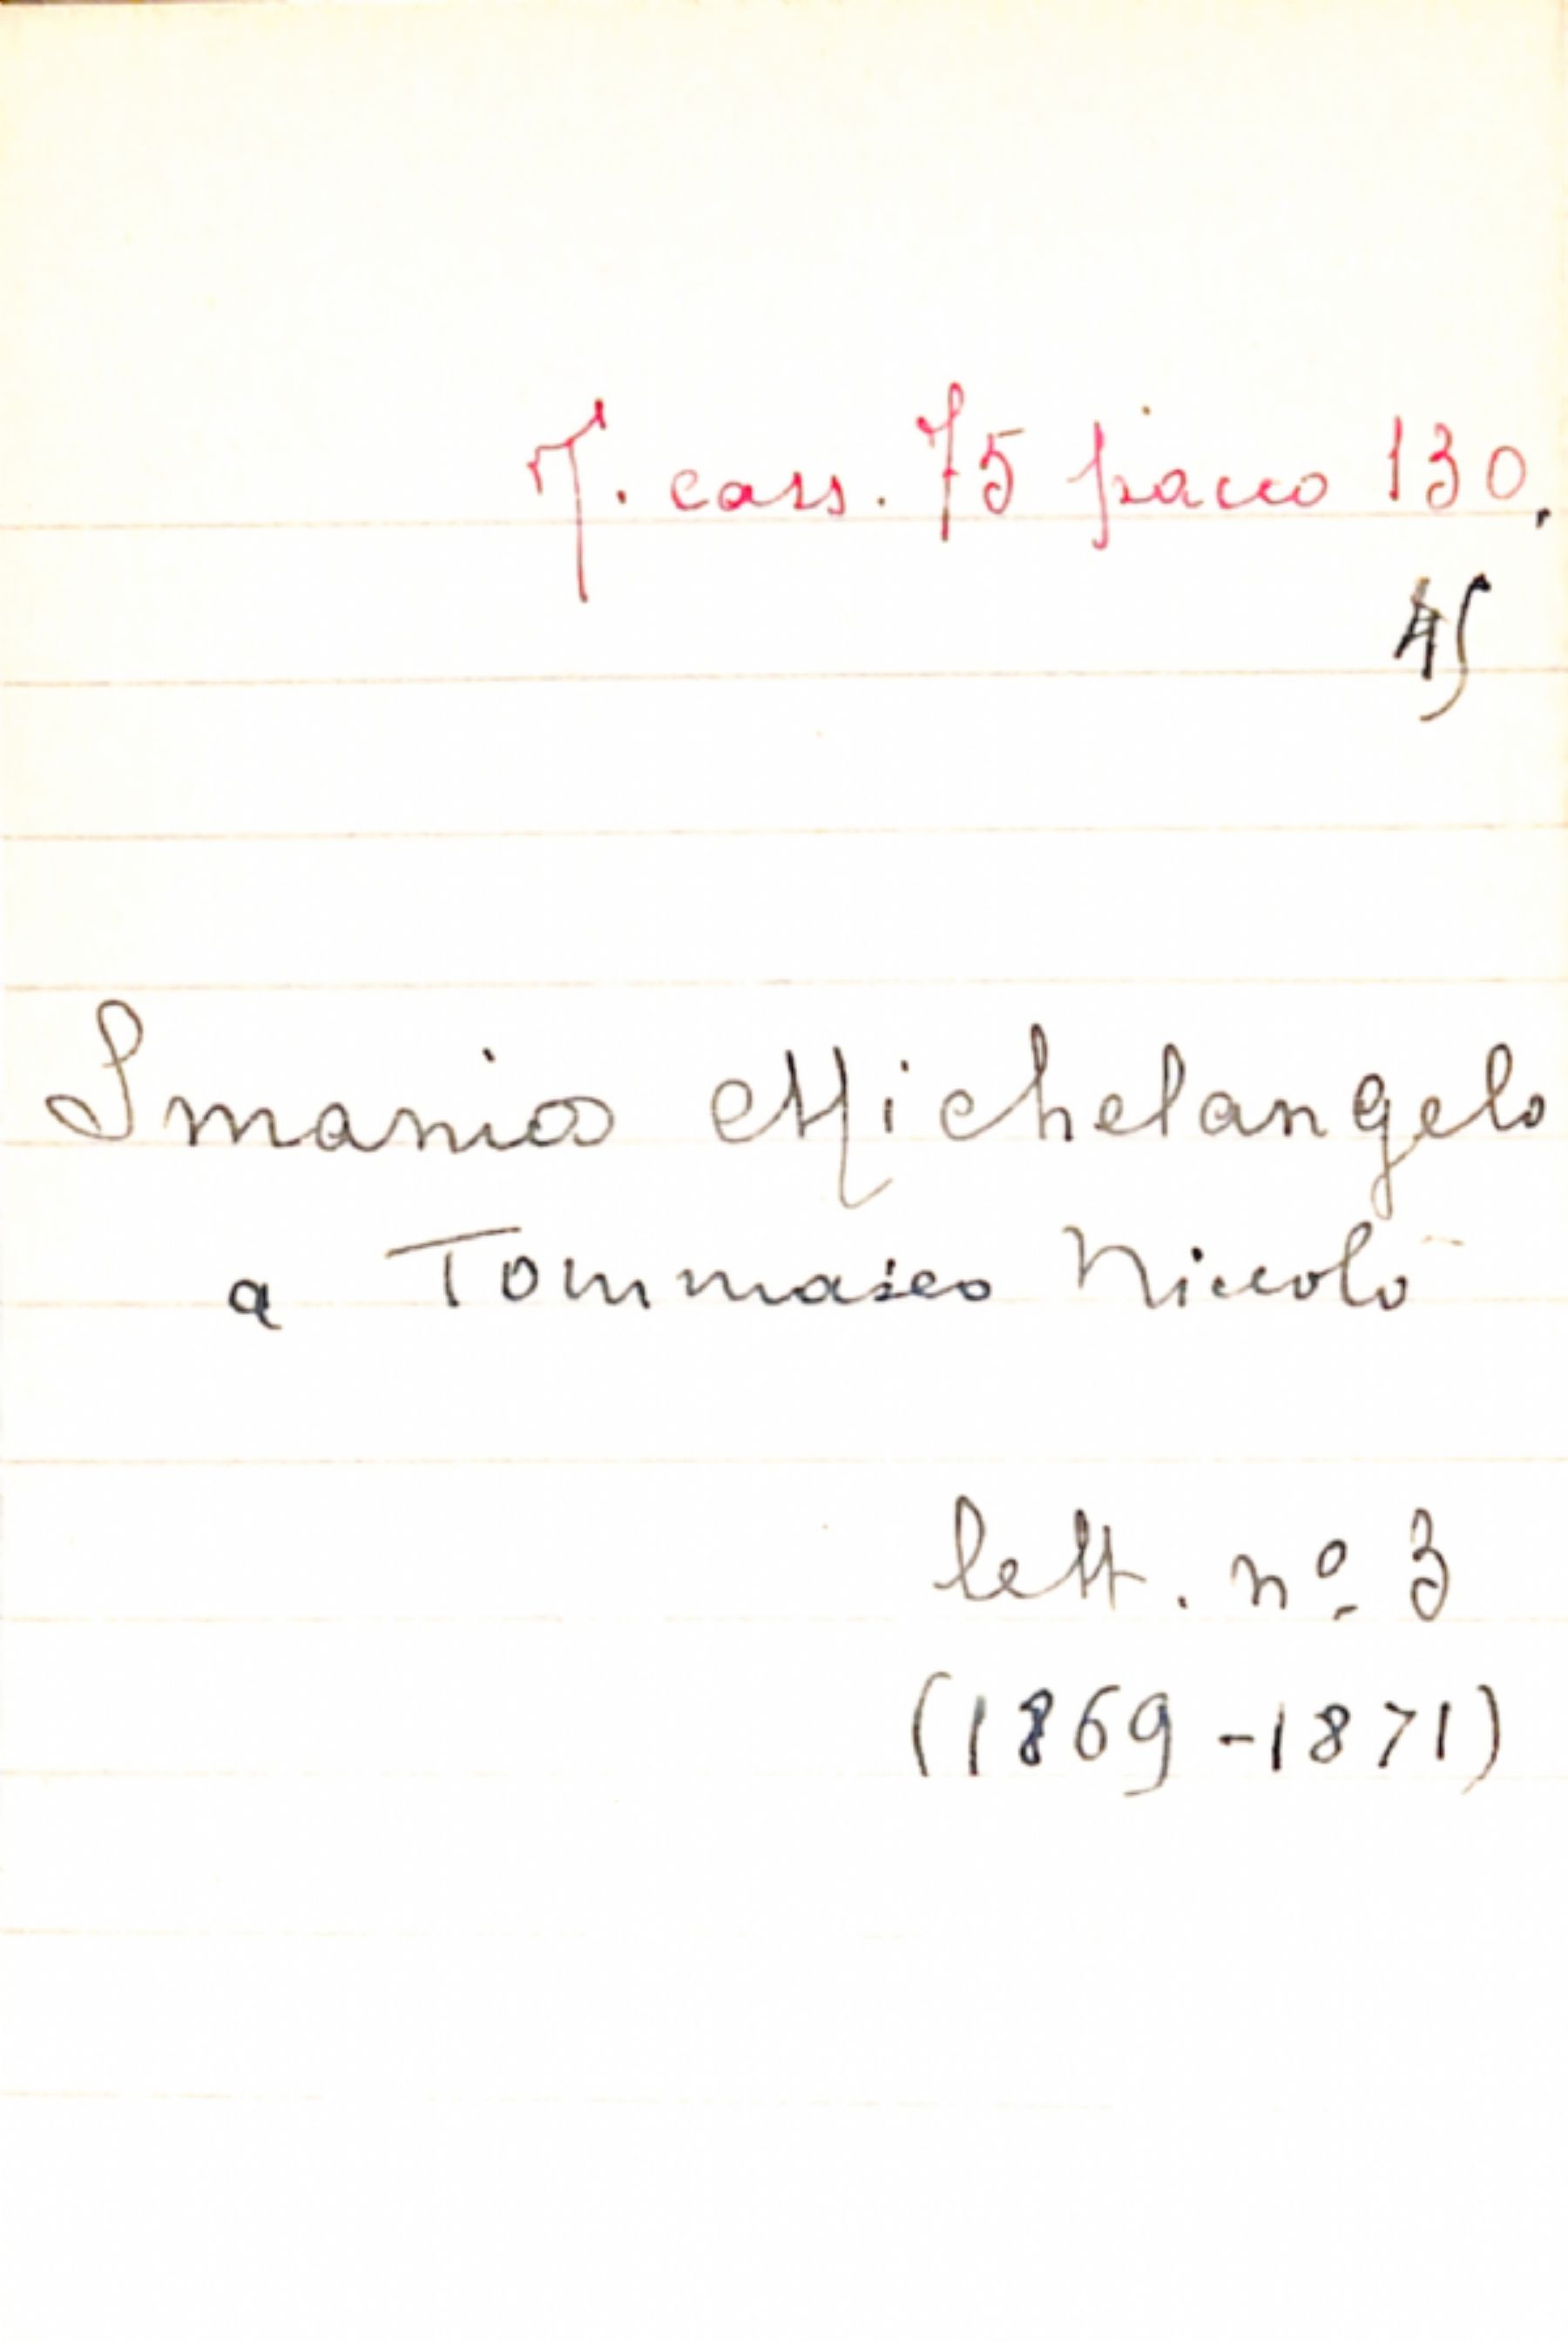 T. cass. 75 pacco 130.
45
Smanio Michelangelo
a Tommaseo Niccolò
lett. nº 3
(1869-1871)